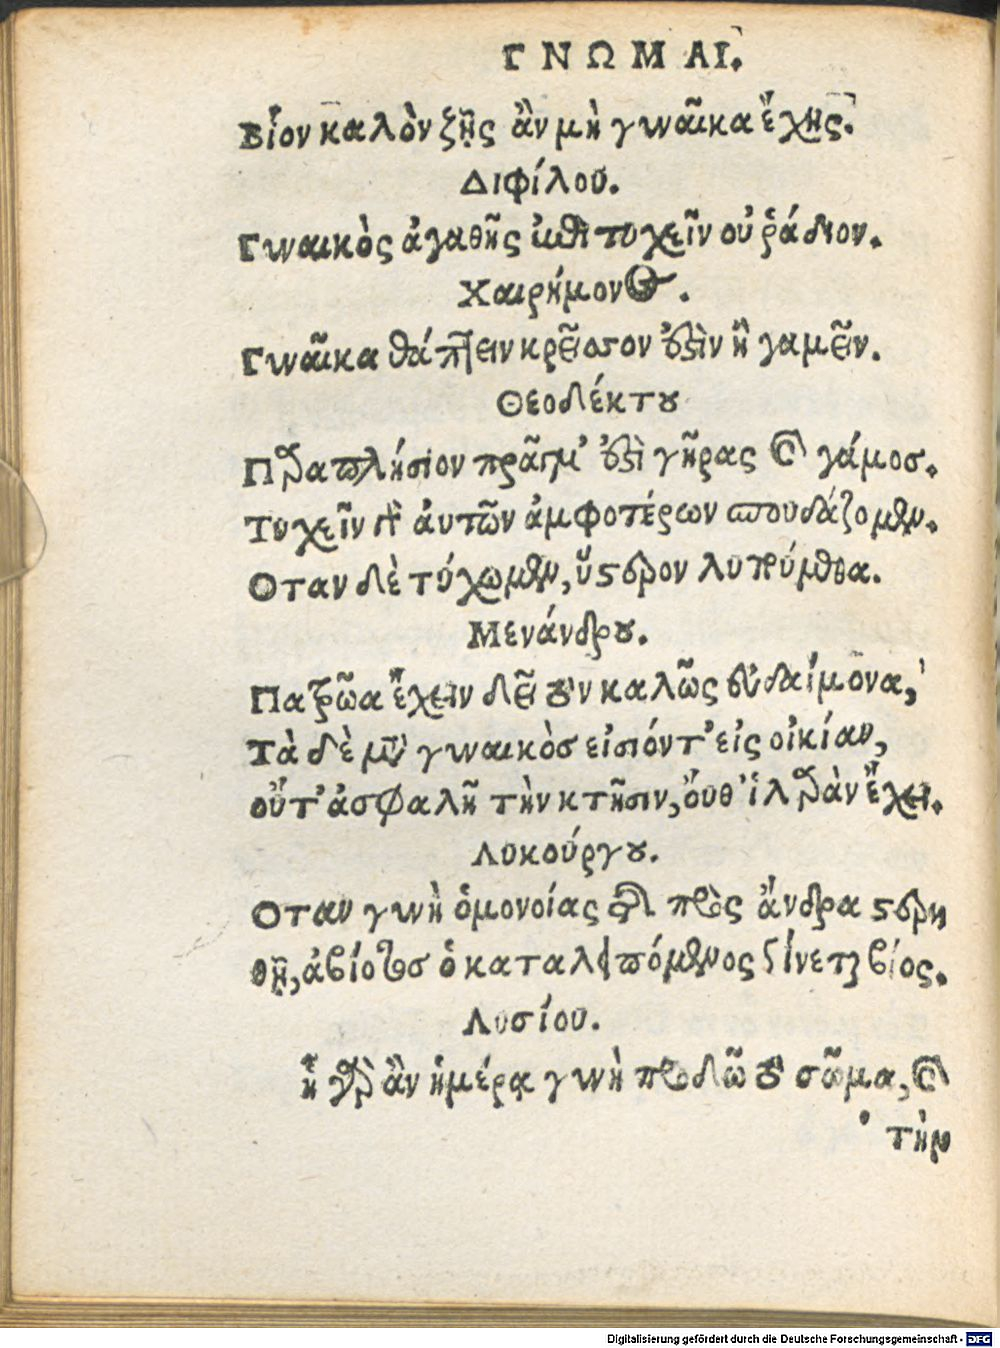 ΓΝΩΜΑΙ.
Βίον καλὸν ζῇς ἂν μὴ γυναῖκα ἔχῃς.
Διφίλου.
Γυναικὸς ἀγαθῆς ἐπιτυχεῖν οὐ ῥάδιον.
Χαιρήμονος.
Γυναῖκα θάπτειν κρεῖσσον ἐστὶν ἢ γαμεῖν.
Θεοδέκτου
Παραπλήσιον πρᾶγμ' ἐστὶ γῆρας καὶ γάμος.
Τυχεῖν γὰρ ἀυτῶν ἀμφοτέρων σπουδάζομεν.
Οταν δὲ τύχωμεν, ὕστερον λυπούμεθα.
Μενάνδρου.
Πατρῶα ἔχειν δεῖ τὸν καλῶς εὐδαίμονα,
Τὰ δὲ μετὰ γυναικὸς εἰσιόντ' εἰς οἰκίαν,
οὔτ' ἀσφαλῆ τὴν κτῆσιν, οὔθ' ἱλαρὰν ἔχει.
Λυκούργου.
Οταν γυνὴ ὁμονοίας τῆς πρὸς ἄνδρα στερη
θῇ, ἀβίωτος ὁ καταλειπόμενος γίνεται βίος.
Λυσίου.
ᾗ γὰρ ἂν ἡμέρᾳ γυνὴ προδῶ τὸ σῶμα, καὶ
τὴν
Digitalisierung gefördert durch die Deutsche Forschungsgemeinschaft - DFG